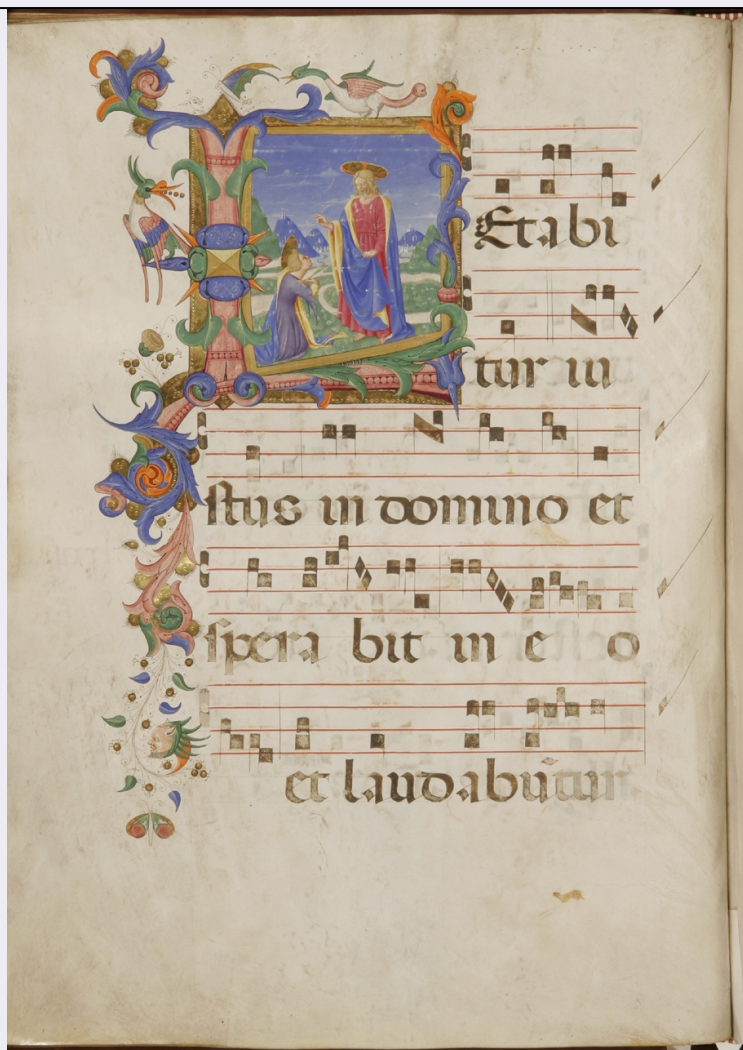 LEtabi
tur iu
stus in domino et
spera bit in e o
et laudabũtur